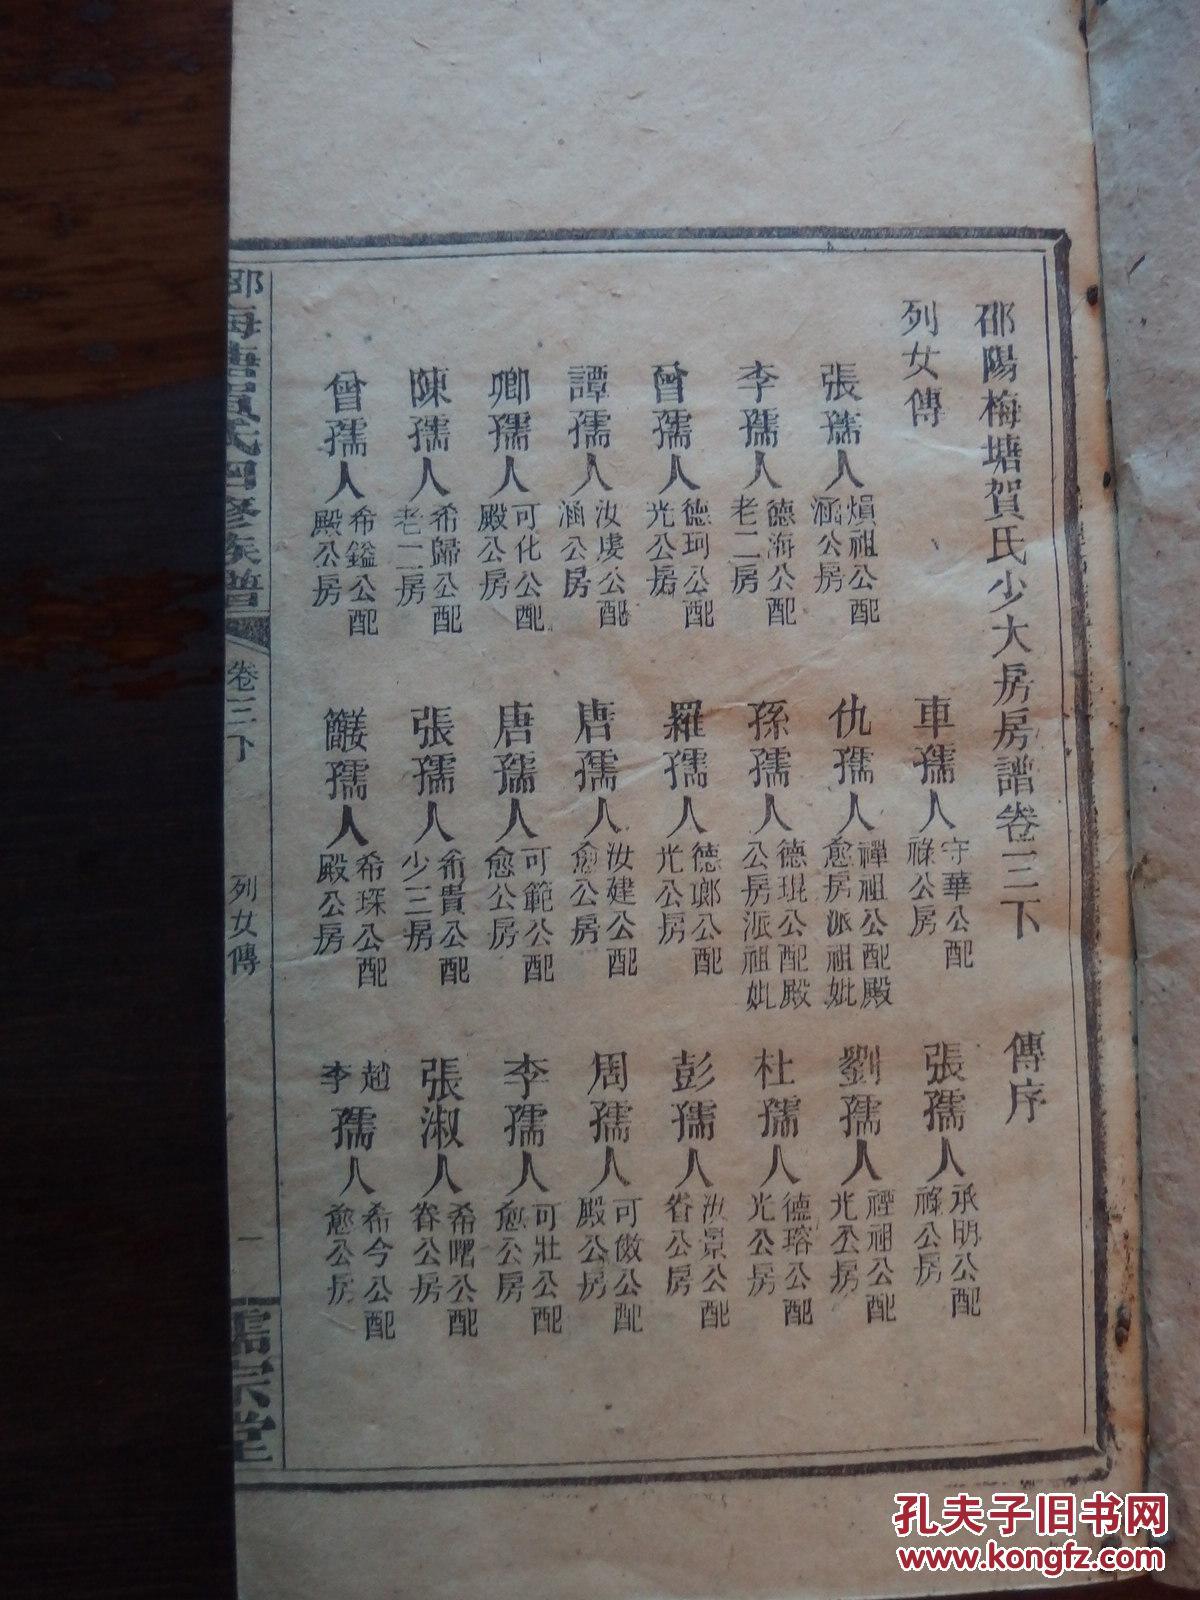 邵陽梅塘賀氏少大房房譜卷三下 傳序
列女傳
車孺人 守華公配 祿公房
張孺人 承明公配 祿公房
張孺人 熉祖公配 涵公房
仇孺人 禪祖公配殿 愈房派祖妣
劉孺人 禋祖公配 光公房
李孺人 德海公配 老二房
孫孺人 德琨公配殿 公房派祖妣
杜孺人 德瑢公配 光公房
曾孺人 德珂公配 光公房
羅孺人 德瑯公配 光公房
彭孺人 汝景公配 眷公房
譚孺人 汝虔公配 涵公房
唐孺人 汝建公配 愈公房
周孺人 可儆公配 殿公房
卿孺人 可化公配 殿公房
唐孺人 可範公配 愈公房
李孺人 可壯公配 愈公房
陳孺人 希歸公配 老二房
張孺人 希貴公配 少三房
張淑人 希曙公配 眷公房
曾孺人 希鎰公配 殿公房
孺人 希琛公配 殿公房
趙李孺人 希今公配 愈公房
氏四修族譜 卷三下 列女傳 一 儒宗堂
孔夫子旧书网
www.kongfz.com